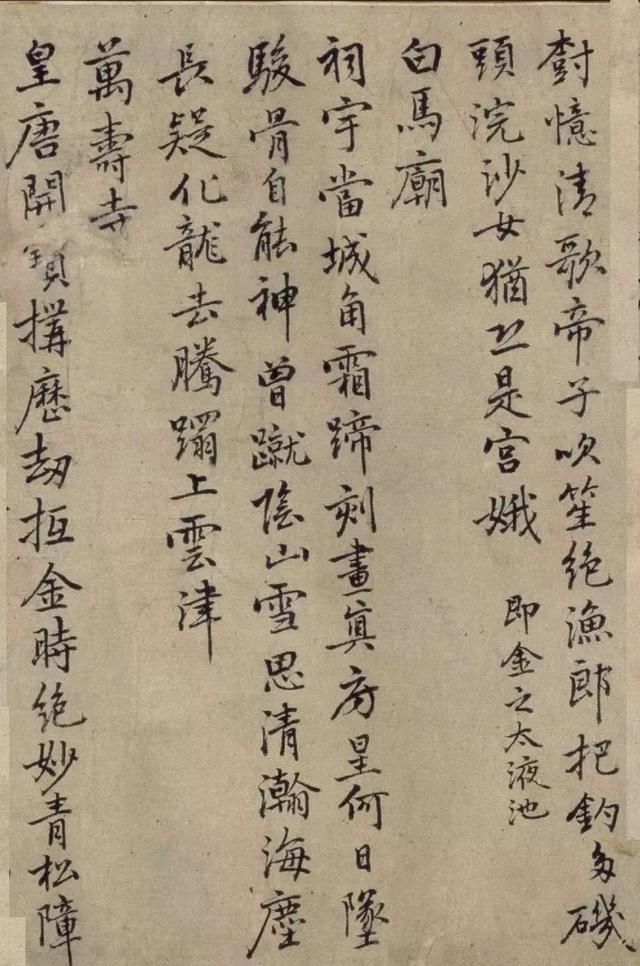 樹憶清歌帝子吹笙絕漁郎把釣多磯
頭浣沙女猶恐是宮娥 即金之太液池
白馬廟
祠宇當城角霜蹄刻畫真房星何日墜
駿骨自能神曾蹴陰山雪思清瀚海塵
長疑化龍去騰躡上雲津
萬壽寺
皇唐開寶搆歷劫抵金時絕妙青松障